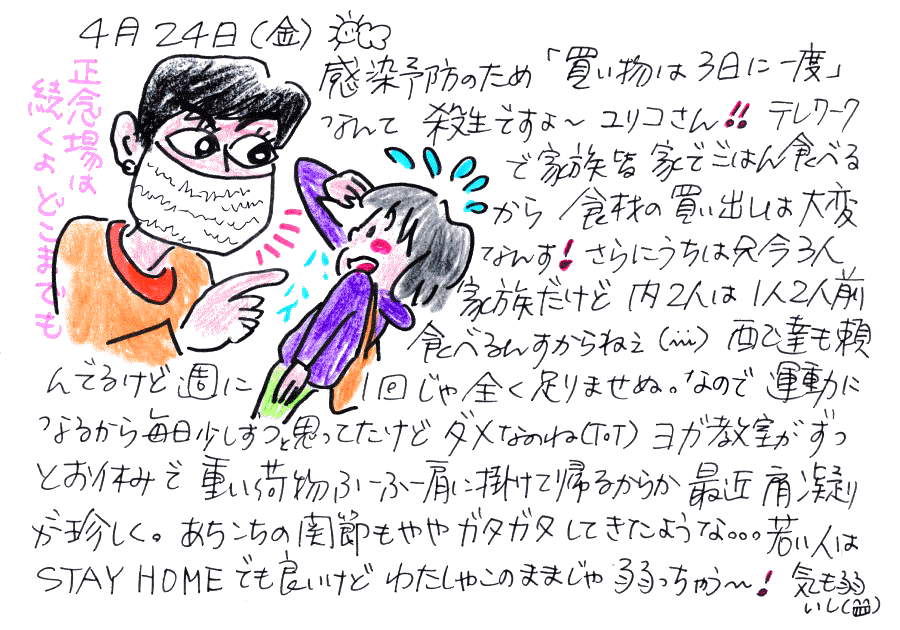 4月24日(金)
正念場は
続くよどこまでも
感染予防のため「買い物は3日に一度」
なんて 殺生ですよ〜ユリコさん!! テレワーク
で家族皆 家でごはん食べる
から 食材の買い出しは大変
なんす!さらにうちは只今3人
家族だけど 内2人は1人2人前
食べるんすからねぇ(;;;) 配達も頼
んでるけど週に 1回じゃ全く足りませぬ。なので 運動に
なるから毎日少しずつと思ってたけど ダメなのね(ToT) ヨガ教室がずっ
とお休みで 重い荷物ふーふー肩に掛けて帰るからか 最近肩凝り
が珍しく。あちこちの関節もややガタガタしてきたような。。。若い人は
STAY HOMEでも良いけど わたしゃこのままじゃ弱っちゃう〜!気も弱
いし